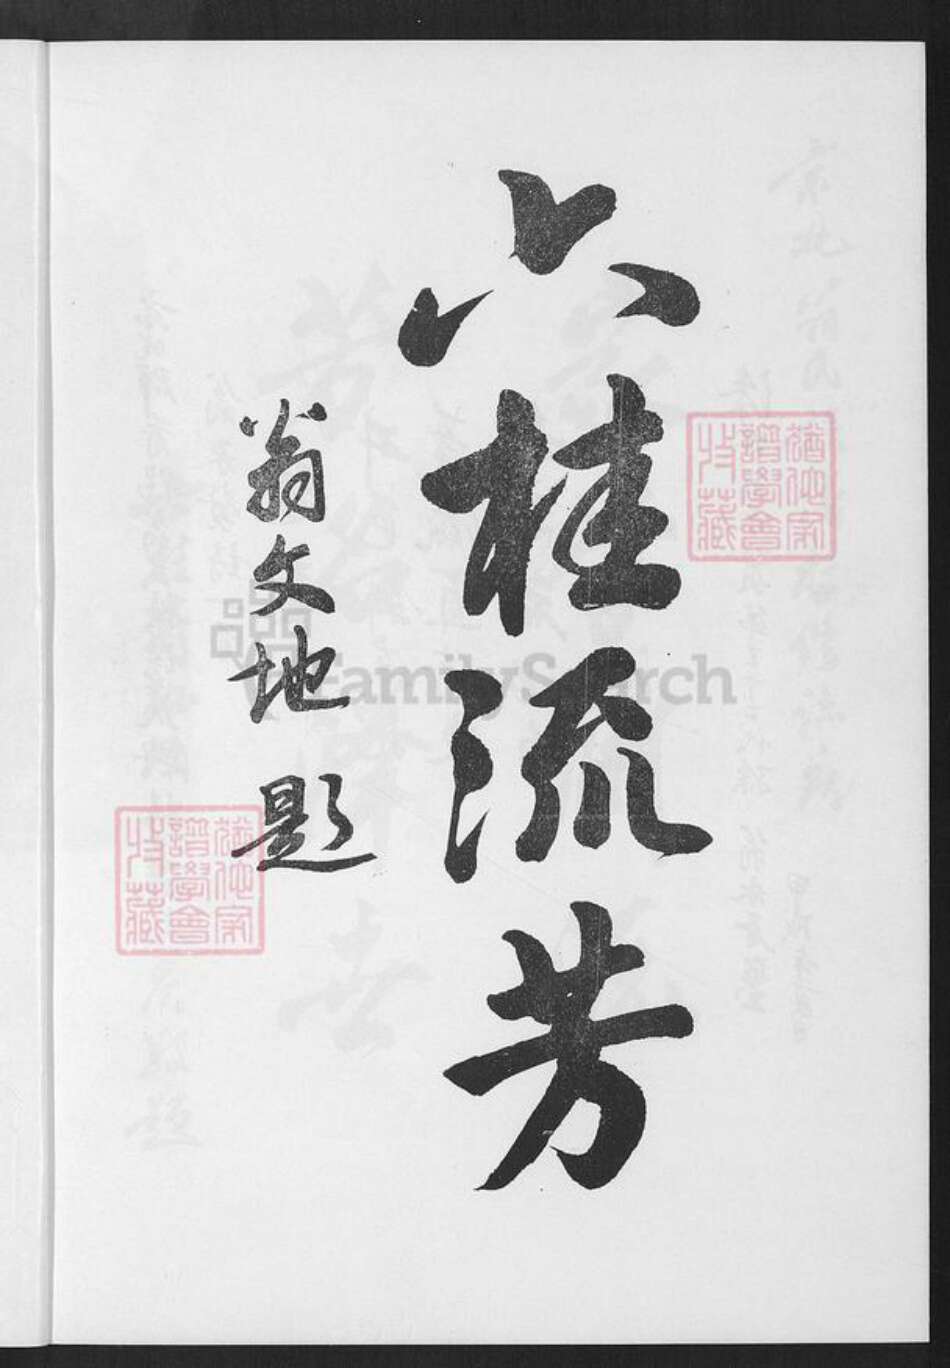 六桂流芳
翁文地 題
猶他家
譜學會
收藏
猶他家
譜學會
收藏
FamilySearch